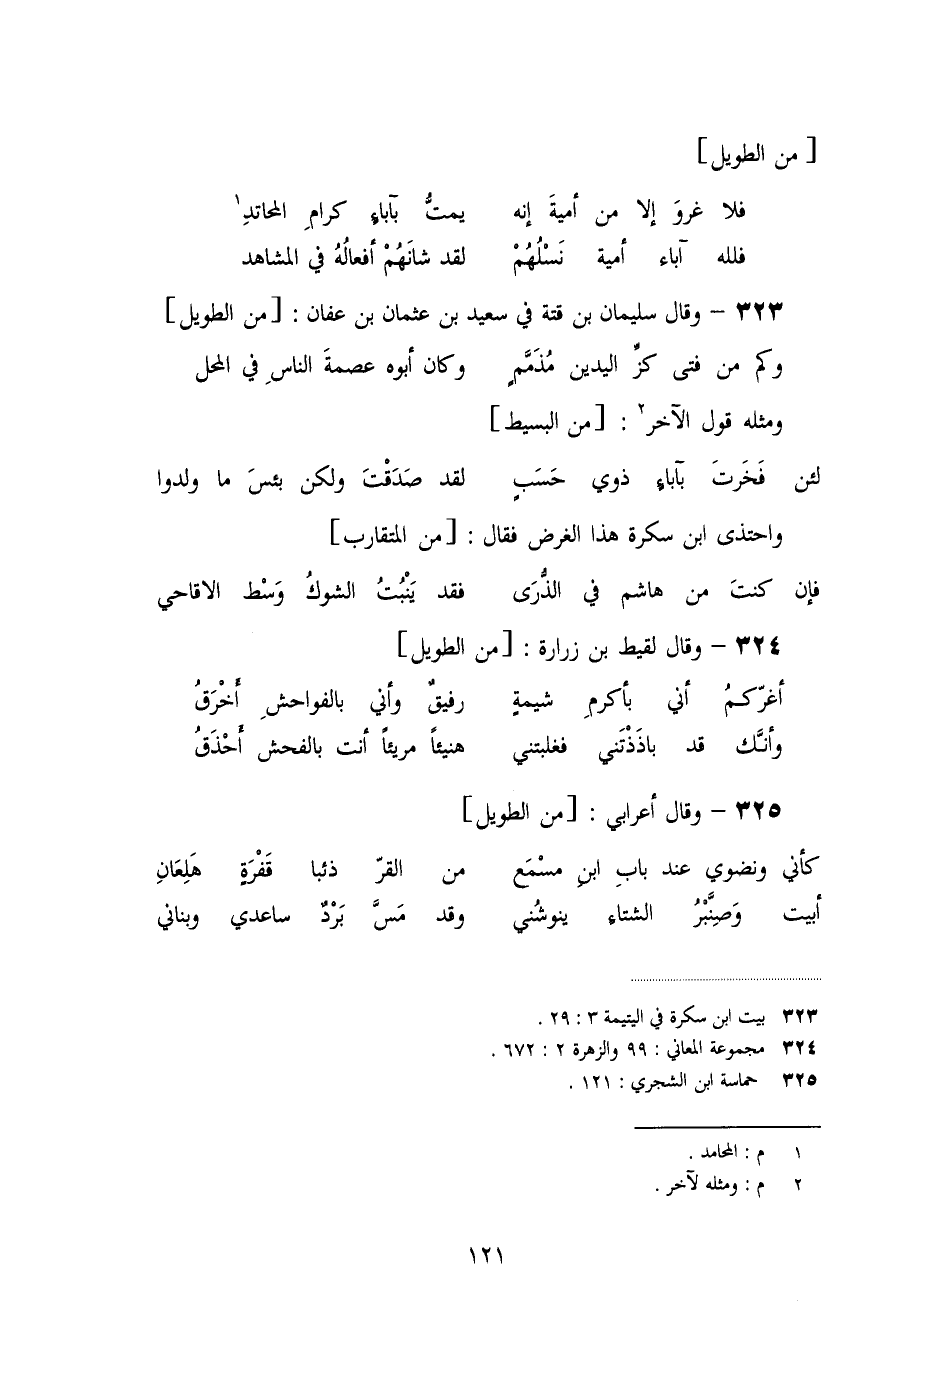 [ من الطويل ]
فلا غروَ إلا من أميةَ إنه يمتُّ بآباءٍ كرامِ المحاتدِ١
فلله آباء أمية نَسْلُهُمْ لقد شانَهُمْ أفعالُهُ في المشاهد
٣٢٣ – وقال سليمان بن قتة في سعيد بن عثمان بن عفان : [ من الطويل ]
وكم من فتى كزِّ اليدين مُذَمَّمٍ وكان أبوه عصمةَ الناسِ في المحل
ومثله قول الآخر٢ : [ من البسيط ]
لئن فَخَرتَ بآباءٍ ذوي حَسَبٍ لقد صَدَقْتَ ولكن بئسَ ما ولدوا
واحتذى ابن سكرة هذا الغرض فقال : [ من المتقارب ]
فإن كنتَ من هاشم في الذُّرَى فقد يَنْبُتُ الشوكُ وَسْط الاقاحي
٣٢٤ – وقال لقيط بن زرارة : [ من الطويل ]
أغرّكمُ أني بأكرمِ شيمةٍ رفيقٌ وأني بالفواحشِ أَخْرَقُ
وأنَّك قد باذَذْتَني فغلبتني هنيئاً مريئاً أنت بالفحش أَحْذَقُ
٣٢٥ – وقال أعرابي : [ من الطويل ]
كأني ونضوي عند بابِ ابنِ مسْمَعٍ من القرّ ذئبا قَفْرَةٍ هَلِعَانِ
أبيت وَصِنَّبْرُ الشتاء ينوشُني وقد مَسَّ بَرْدٌ ساعدي وبناني
٣٢٣ بيت ابن سكرة في اليتيمة ٣ : ٢٩ .
٣٢٤ مجموعة المعاني : ٩٩ والزهرة ٢ : ٦٧٢ .
٣٢٥ حماسة ابن الشجري : ١٢١ .
١ م : المحامد .
٢ م : ومثله لآخر .
١٢١